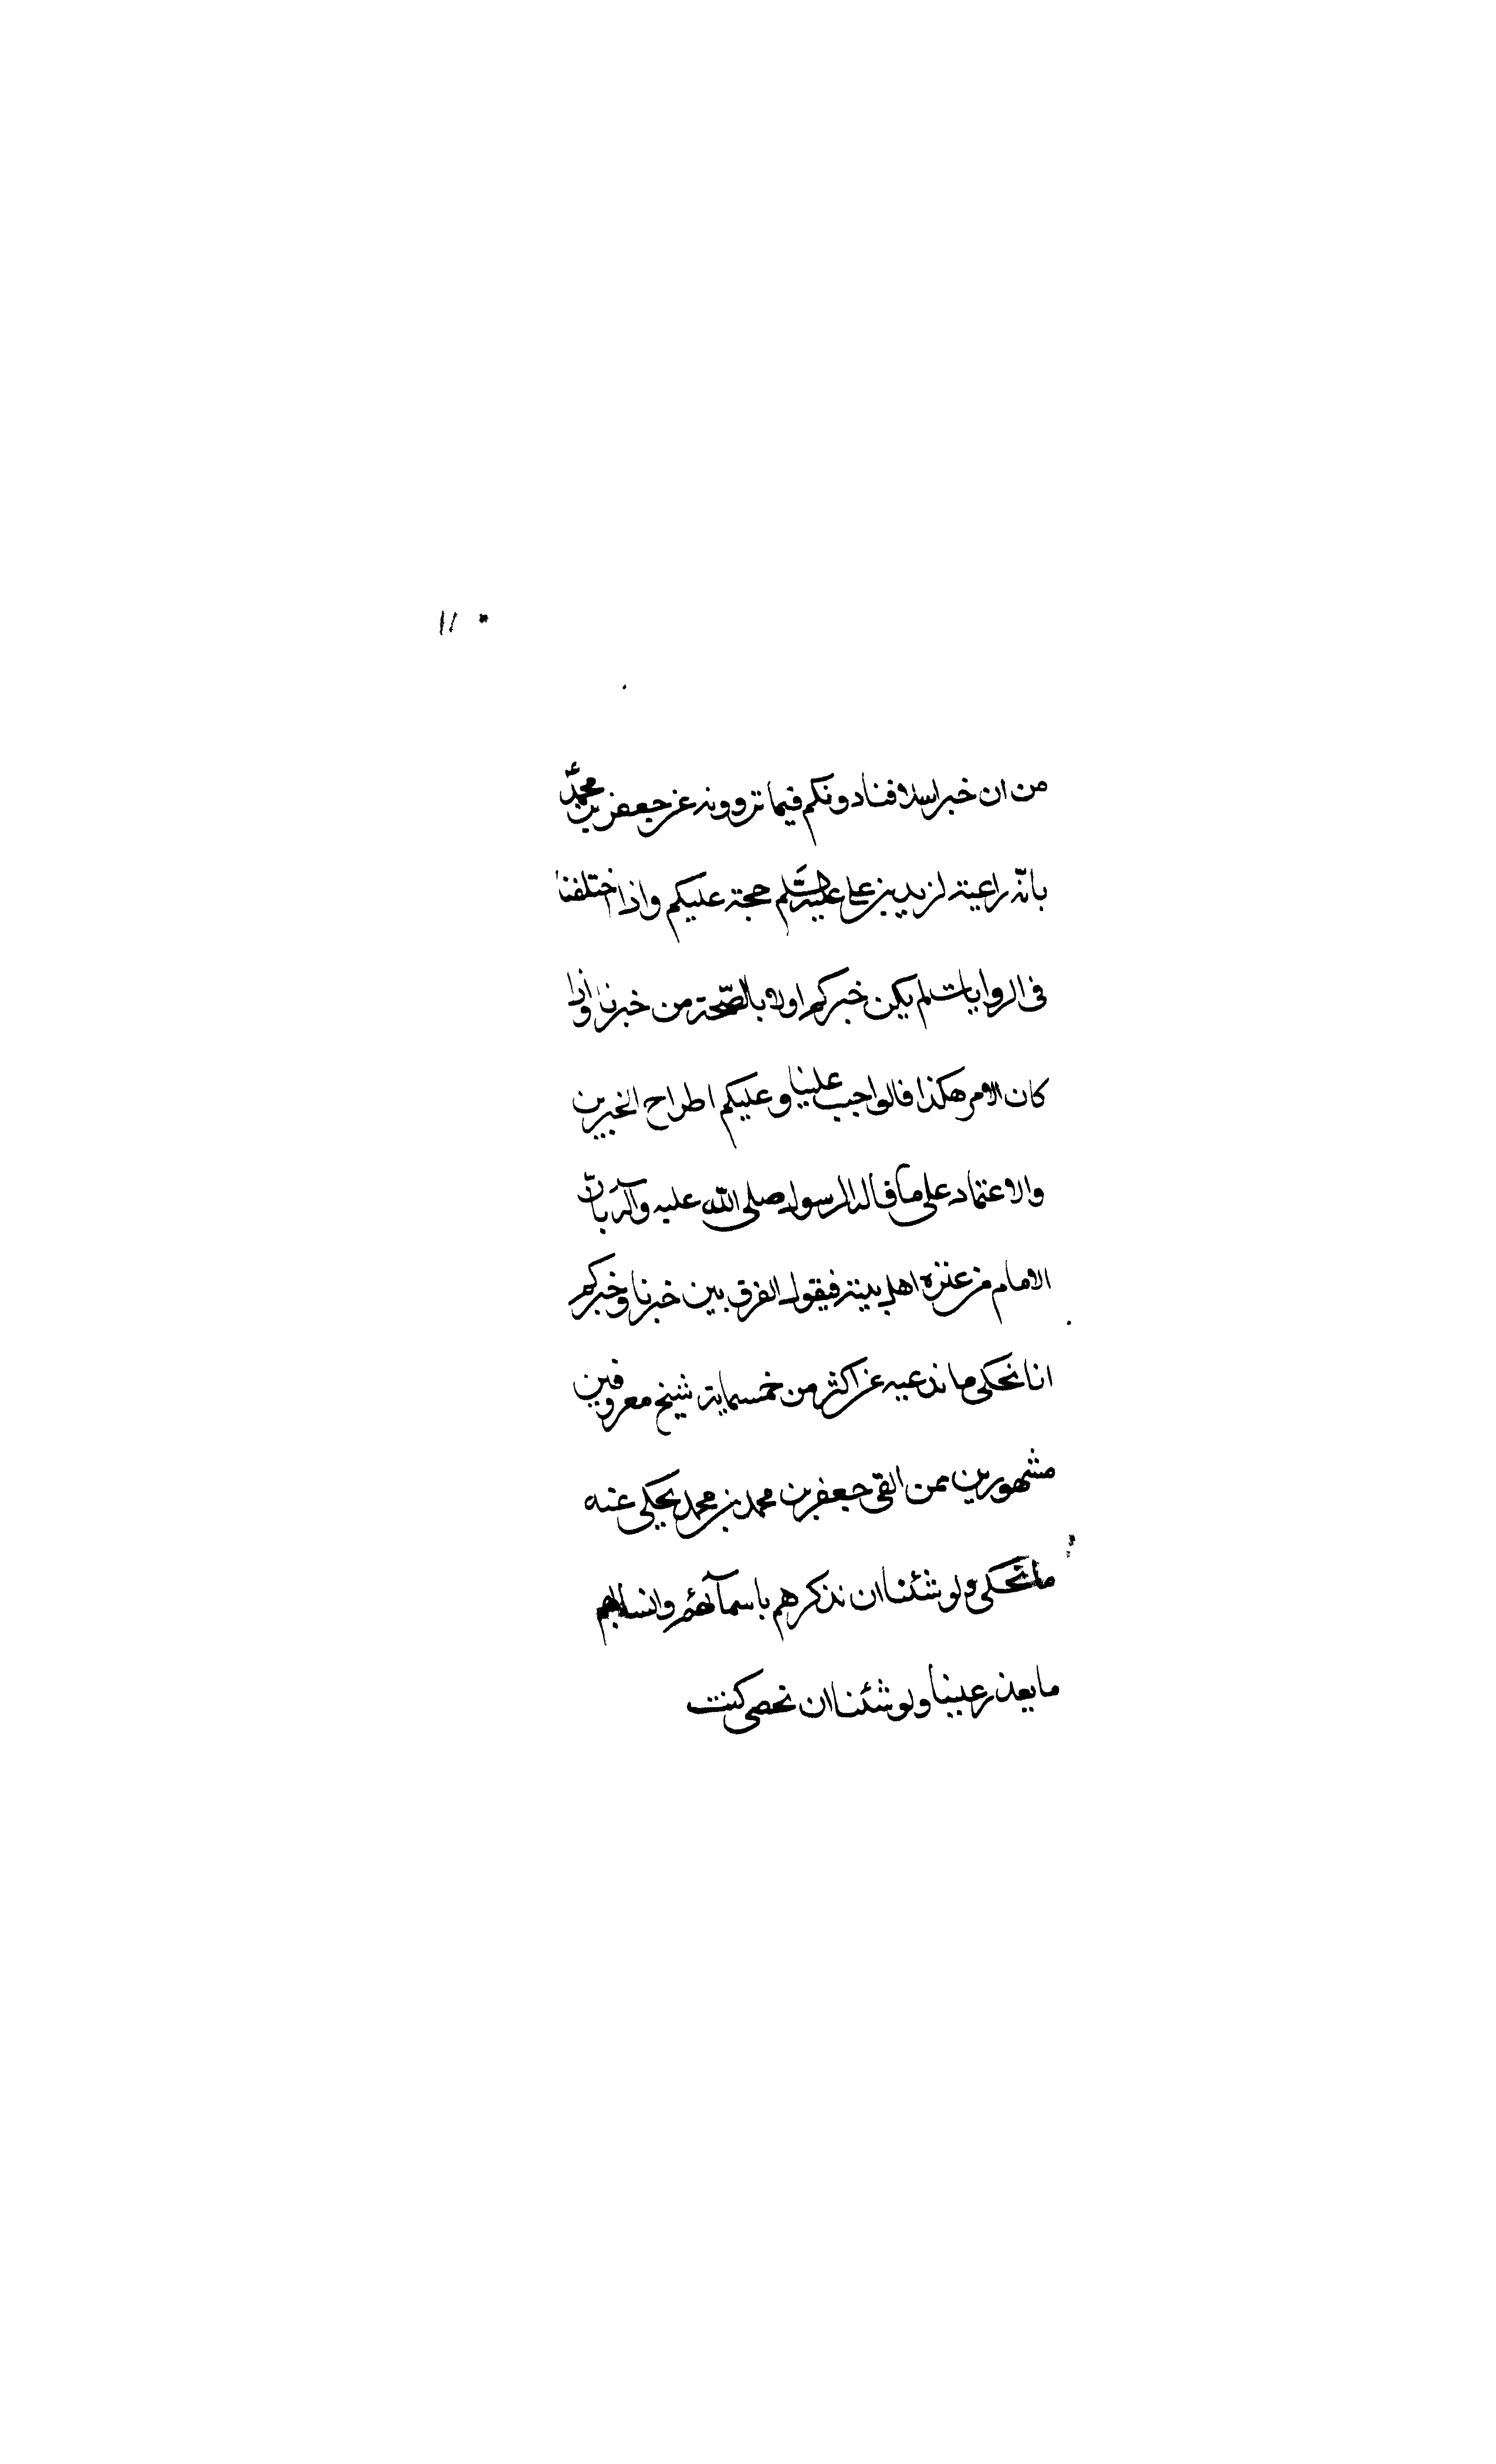 ١١٠
من ان خبر اسلافنا دونكم فيما تروونه عن جعفر بن محمد
بانّه راعية لزيد بن على عليه السّلم حجة عليكم واذا اختلفنا
فى الروايات لم يكن خبركم اولا بالصّحة من خبرنا واذا
كان الامر هكذا فالواجب علينا وعليكم اطراح الخبرين
والاعتماد على ما قاله الرسول صلى الله عليه وآله بانّ
الامام من عترة اهل بيته فيقول الفرق بين خبرنا وخبركم
انا نحكى ما ندعيه عن اكثر من خمسماية شيخ معروفين
مشهورين ممن القى جعفر بن محمد بن محمد يحكى عنه
ما نحكى ولو شئنا ان نذكرهم باسمآئهم وانسابهم
ما يعذر علينا ولو شئنا ان نحصى كتب